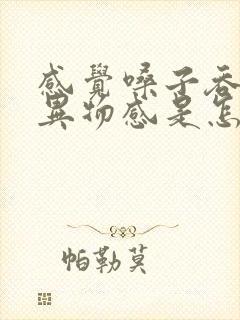 感覺嗓子吞
異物感是怎
帕勒莫